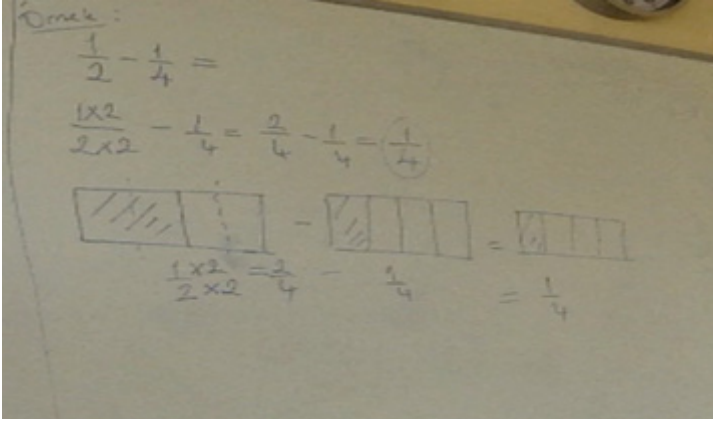 Örnek:
1/2 - 1/4 =
1x2/2x2 - 1/4 = 2/4 - 1/4 = 1/4
- =
1x2/2x2 = 2/4 - 1/4 = 1/4